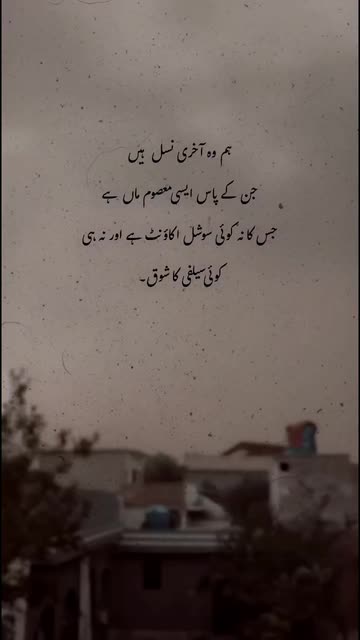 ہم وہ آخری نسل ہیں
جن کے پاس ایسی معصوم ماں ہے
جس کا نہ کوئی سوشل اکاؤنٹ ہے اور نہ ہی
کوئی سیلفی کا شوق۔